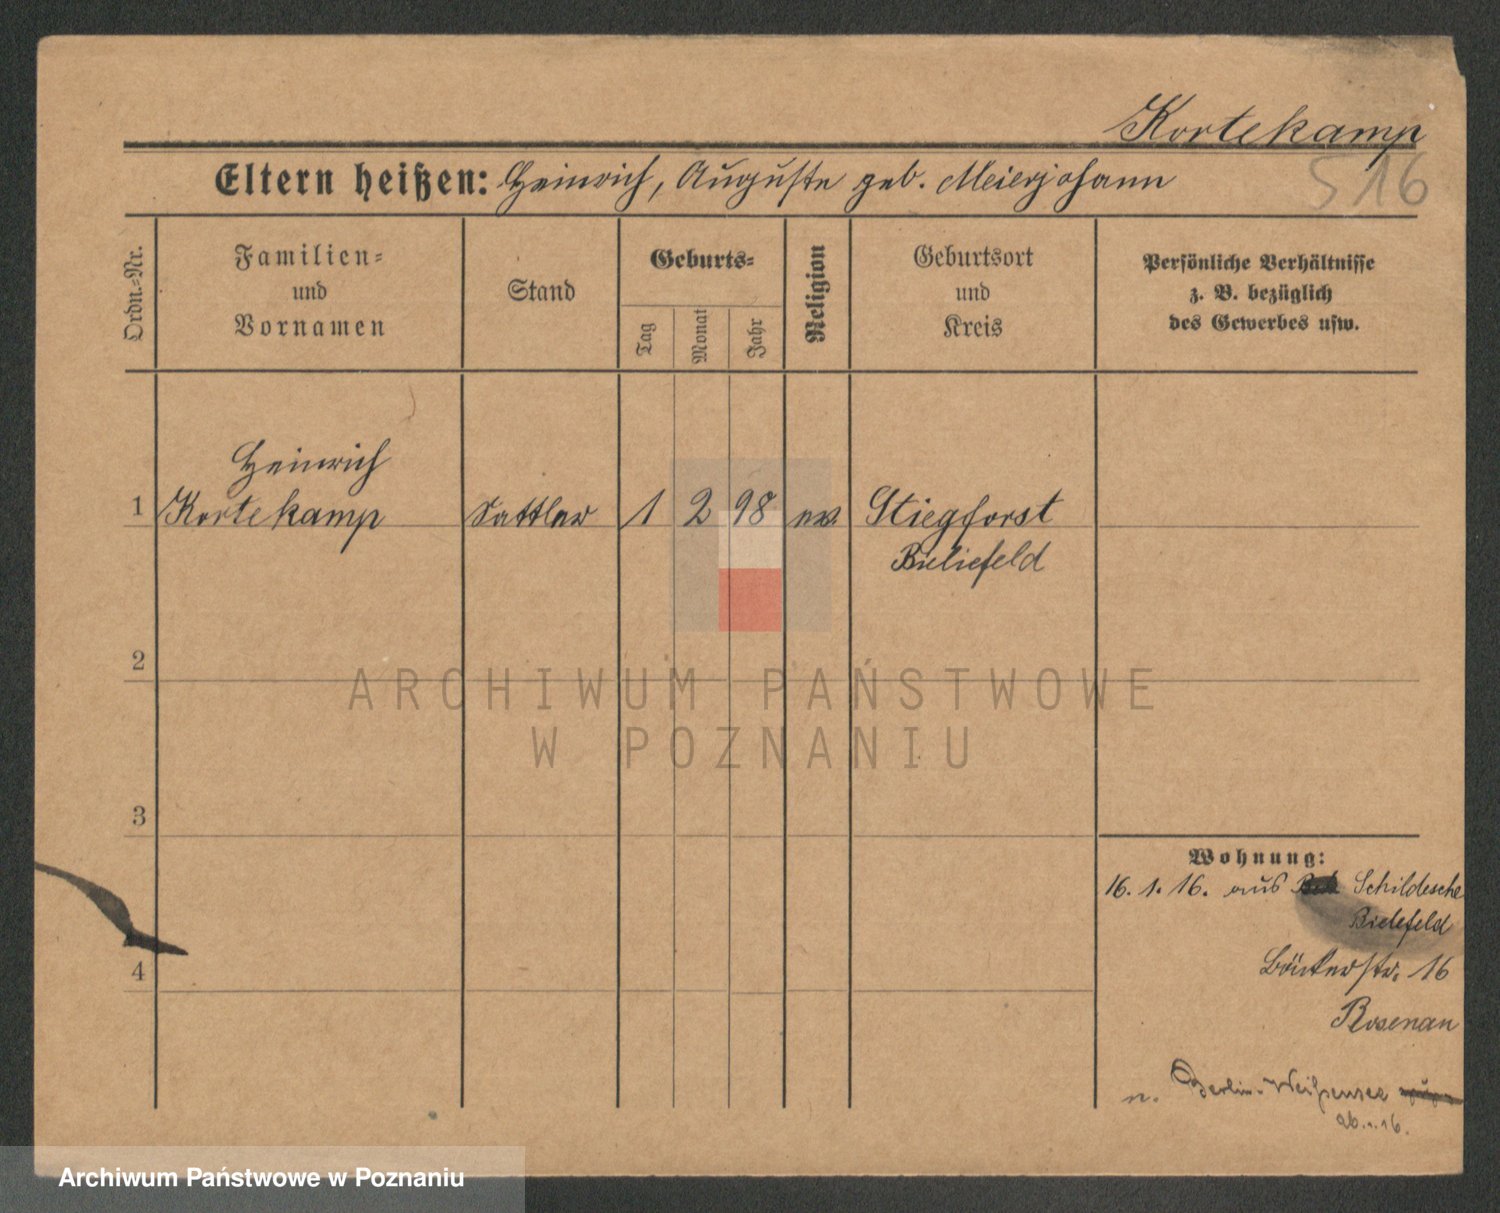 Kortekamp
516
Eltern heißen: Heinrich, Auguste geb. Meierjohann
Ordn.=Nr.
Familien=
und
Vornamen
Stand
Geburts=
Tag
Monat
Jahr
Religion
Geburtsort
und
Kreis
Persönliche Verhältnisse
z. B. bezüglich
des Gewerbes usw.
Heinrich
1 Kortekamp Sattler 1 2 98 ev. Stieghorst
Bielefeld
2
ARCHIWUM PAŃSTWOWE
W POZNANIU
3
Wohnung:
16. 1. 16. aus Schildesche
Bielefeld
4
Bäckerstr. 16
Rosenau
n. Berlin-Weißensee
26.1.16.
Archiwum Państwowe w Poznaniu